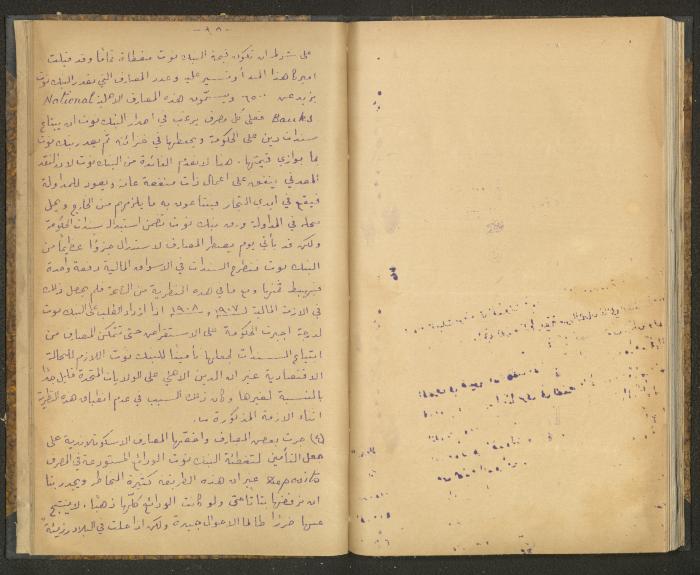 - ٩٨ -
على شرط ان تكون قيمة البنك نوت مغطاة تماماً وقد قبلت
اميركا هذا المبدأ وتسير عليه وعدد المصارف التي تصدر البنك نوت
يزيد عن ٦٥٠٠ ويسمّون هذه المصارف الاهلية National
Banks فعلى كل مصرف يرغب في اصدار البنك نوت ان يبتاع
سندات دين على الحكومة ويحفظها في خزائنه ثم يصدر بنك نوت
بما يوازي قيمتها. هنا لا نعدم الفائدة من البنك نوت لان النقد
المعدني ينفق على اعمال ذات منفعة عامة ويعود للمداولة
فيقع في ايدي التجار فيبتاعون به ما يلزمهم من الخارج ويحل
محله في المداولة ورق بنك نوت تضمن استبداله سندات الحكومة
ولكن قد يأتي يوم يضطر المصارف لاستبدال جزءًا عظيماً من
البنك نوت فتطرح السندات في الاسواق المالية دفعة واحدة
فيهبط ثمنها ومع ما في هذه النظرية من الصحة فلم يحصل ذلك
في الازمة المالية لـ ١٩٠٧ و ١٩٠٨ اذ ازداد الطلب على البنك نوت
لدرجة اجبرت الحكومة على الاستقراض حتى تتمكن المصارف من
ابتياع السندات لجعلها تأميناً للبنك نوت اللازم للحالة
الاقتصادية غير ان الدين الاهلي على الولايات المتحدة قليل جداً
بالنسبة لغيرها وكان ذلك السبب في عدم انطباق هذه النظرية
اثناء الازمة المذكورة
(٤) جرت بعض المصارف وافقتها المصارف الاسكوتلاندية على
جعل التأمين لتغطية البنك نوت الودائع المستودعة في المصرف
Deposits غير ان هذه الطريقة كثيرة المخاطر ويجدر بنا
ان نرفضها بتاتاً حتى ولو كانت الودائع كلها ذهباً. لا ينتج
عنها ضرراً طالما الاحوال جيدة ولكن اذا حلت في البلاد رزيئة